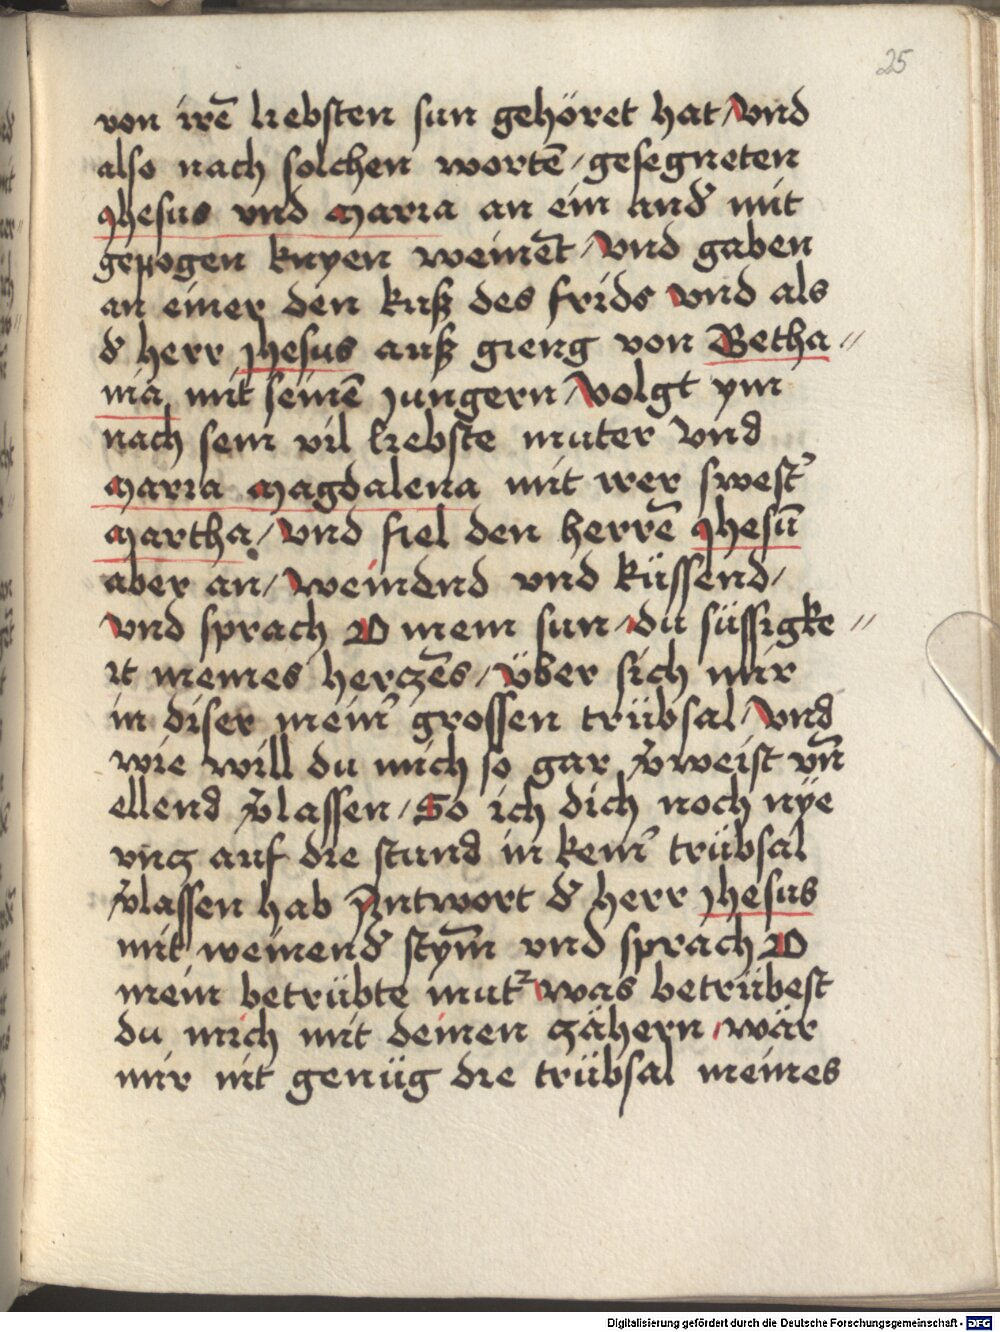 25
von irē liebsten sun gehöret hat / Vnd
also nach solchen wortē / gesegneten
Jhesus vnd Maria an ein and̄ mit
gepogen knyen weinēt / Vnd gaben
an einer den kuß des frids Vnd als
d̄ herr Jhesus auß gieng von Betha //
nia mit seinē Jungern / Volgt ym
nach sein vil liebste muter Vnd
Maria Magdalena mit irer swest̉
Martha / Vnd fiel den herrē Jhesū
aber an / Weinend vnd küssend /
Vnd sprach O mein sun / du süssigke //
it meines herczēs / Über sich mir
in diser mein̉ grossen trübsal / Vnd
wie will du mich so gar v̉weist vn̄
ellend v̉lassen / So ich dich noch nÿe
vncz auf die stund in kein̉ trübsal
v̉lassen hab Antwort d̄ herr Jhesus
mit weinend̄ stym̄ vnd sprach O
mein betrübte mut̉ was betrübest
du mich mit deinen zähern / wär
mir nit genüg die trübsal meines
Digitalisierung gefördert durch die Deutsche Forschungsgemeinschaft - DFG